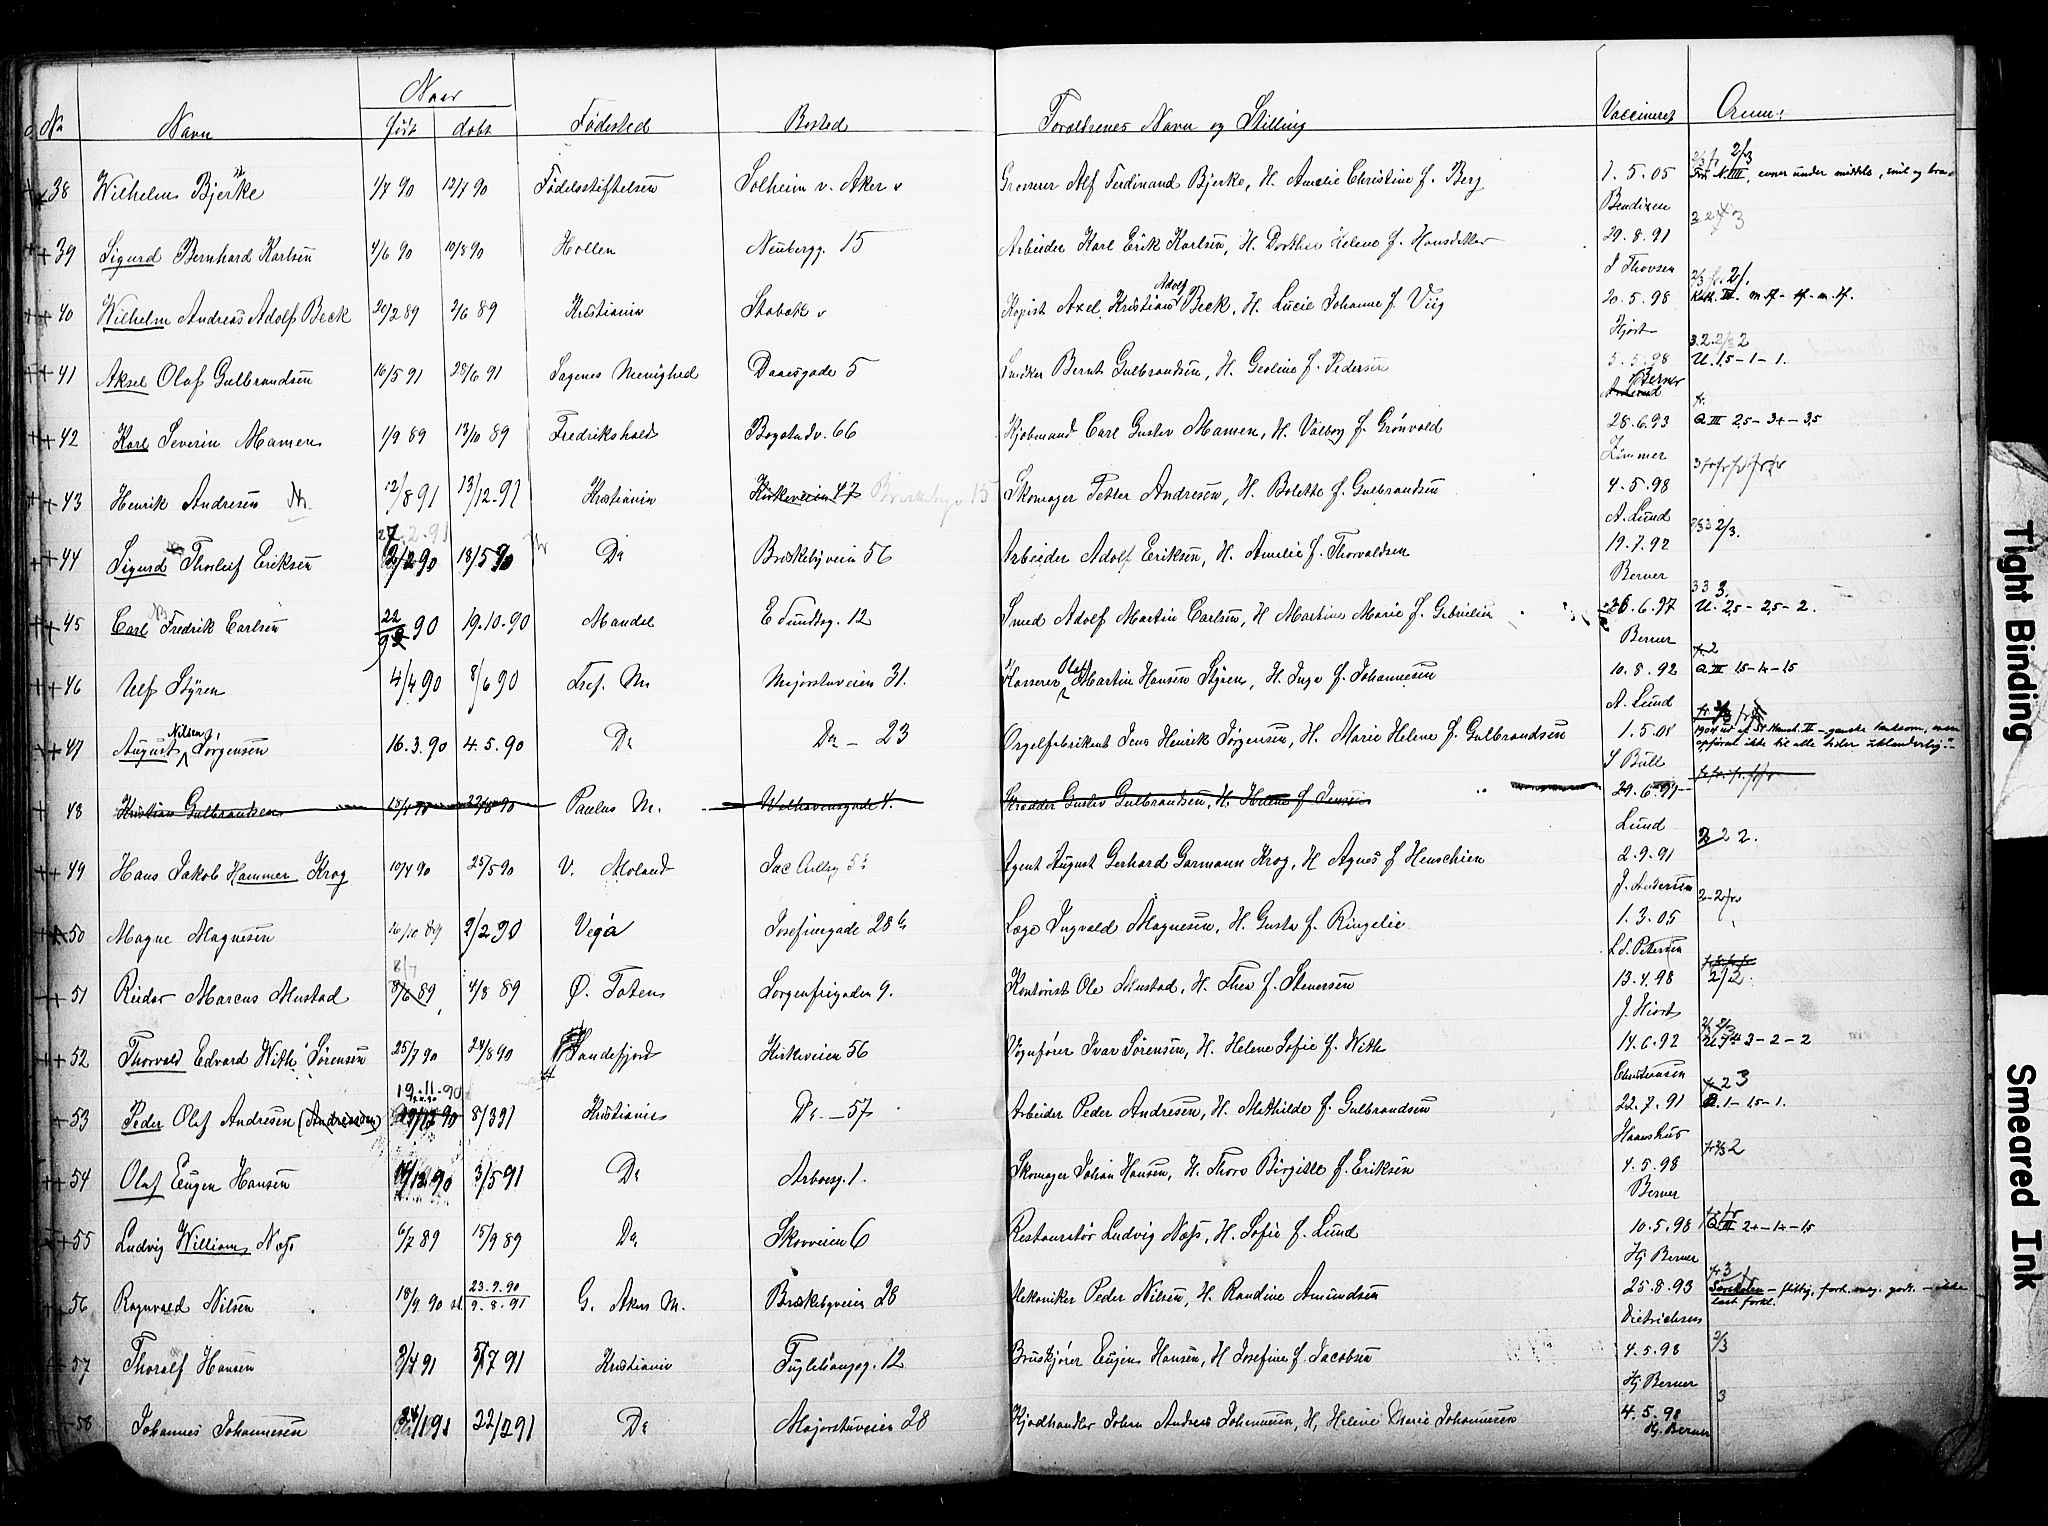 No Navn Naar født døbt Fødested Bosted Forældrenes Navn og Stilling Vaccineret Anm:
38 Wilhelm Bjerke 1/7 90 12/7 90 Fødselsstiftelsen Solheim v. Aker v Grosserer Alf Ferdinand Bjerke, H. Amalie Christine f. Berg 1. 5. 05 Bendixen 2/3
39 Sigurd Bernhard Karlsen 4/6 90 10/8 90 Hollen Neubergg. 15 Arbeider Karl Erik Karlsen, H. Dorthea Helene f. Hansdatter 29. 8. 91 Thovsen
40 Wilhelm Andreas Adolf Beck 20/2 89 2/6 89 Kristiania Stabæk v Kopist Axel Kristian Adolf Beck, H. Lucie Johanne f. Viig 20. 5. 98 Hjort
41 Aksel Olaf Gulbrandsen 16/5 91 28/6 91 Sagenes Menighed Daaesgade 5 Snekker Bernt Gulbrandsen, H. Geoline f. Pedersen 5. 5. 98 Berner U. 1,5 - 1 - 1.
42 Karl Severin Mamen 1/9 89 13/10 89 Fredrikshald Bogstadv. 66 Kjøbmand Carl Gustav Mamen, H. Valborg f. Grønvold 28. 6. 93 Zimmer
43 Henrik Andresen 12/8 91 13/12. 91 Kristiania Kirkeveien 47 15 Skomager Petter Andresen, H. Bolette f. Gulbrandsen 4. 5. 98 A. Lund
44 Sigurd Thorleif Eriksen 27. 2. 91 2/2 90 18/5 90 Do Briskebyveien 56 Arbeider Adolf Eriksen, H. Amelie f. Thorvaldsen 19. 7. 92 Berner 2/3.
45 Carl Fredrik Carlsen 22/9 90 19. 10. 90 Mandal E. Sundtsg. 12 Smed Adolf Martin Carlsen, H Martine Marie f. Gabrielsen 26. 6. 97 Berner 3 3 3. U. 2,5 - 2,5 - 2.
46 Ulf Styren 4/4 90 8/6 90 Tref. M. Majorstuveien 31. Kasserer Olaf Martin Hansen Styren, H. Inga f. Johannesen 10. 8. 92 A. Lund
47 August Nilsen Jørgensen 16. 3. 90 4. 5. 90 Do Do - 23 Orgelfabrikant Jens Henrik Jørgensen, H. Marie Helene f. Gulbrandsen 1. 5. 05 S Bull
48 Kristian Gulbrandsen Paulus M. Welhavensgade 4. Skrædder Gustav Gulbrandsen, H. Helene f. Jensen 29. 6. 97 Lund
49 Hans Jakob Hammer Krog 10/4 90 25/5 90 V. Moland Jac Aallsg 5 Agent August Gerhard Garmann Krog, H Agnes f Henschien 2. 9. 91 J. Andersen 2 2 2.
50 Magne Magnesen 26/10 89 2/2 90 Vega Josefinegade 28 b Læge Ingvald Magnesen, H. Gusta f. Ringelie 1. 3. 05 L.S. Petersen
51 Reidar Marcus Mustad 8/7 8/6 89 4/8 89 Ø. Toten Sorgenfrigaden 9. Kontorist Ole Mustad, H. Thea f. Stenersen 13. 4. 98 J. Hiort 2/2.
52 Thorvald Edvard With Sørensen 25/7 90 24/8 90 Sandefjord Kirkeveien 56 Vognfører Ivar Sørensen, H. Helene Sofie f. With 14. 6. 92 Christiansen 3 - 2 - 2
53 Peder Olaf Andresen (Andreassen) 19. 11. 90 8/3 91 Kristiania Do - 57 Arbeider Peder Andresen, H. Mathilde f Gulbrandsen 22. 7. 91 Haaeshus 1 - 1,5 - 1.
54 Olaf Eugen Hansen 12 90 3/5 91 Do Arbosg. 1. Skomager Johan Hansen, H. Thora Birgitte f. Eriksen 4. 5. 98 Berner
55 Ludvig William Næss 6/7 89 15/9 89 Do Skovveien 6 Restauratør Ludvig Næss, H. Sofie f. Lund 10. 5. 98 Hj Berner
56 Ragnvald Nilsen 18/9. 90 23. 9. 90 9. 8. 91 G. Akers M. Briskebyveien 28 Mekaniker Peder Nilsen, H. Randine Amundsen 25. 8. 93 Dietrichsen
57 Thoralf Hansen 2/4 91 5/7 91 Kristiania Fuglehaugg. 12 Bruskjører Eugen Hansen, H Josefine f. Jacobsen 4. 5. 98 Hj Berner 2/3
58 Johannes Johannesen 1 91 22/2 91 Do Majorstuveien 28 Kjødhandler Johan Andreas Johannesen, H, Helene Marie Johannesen 4. 5. 98 Hj. Berner 3
Tight Binding
Smeared Ink